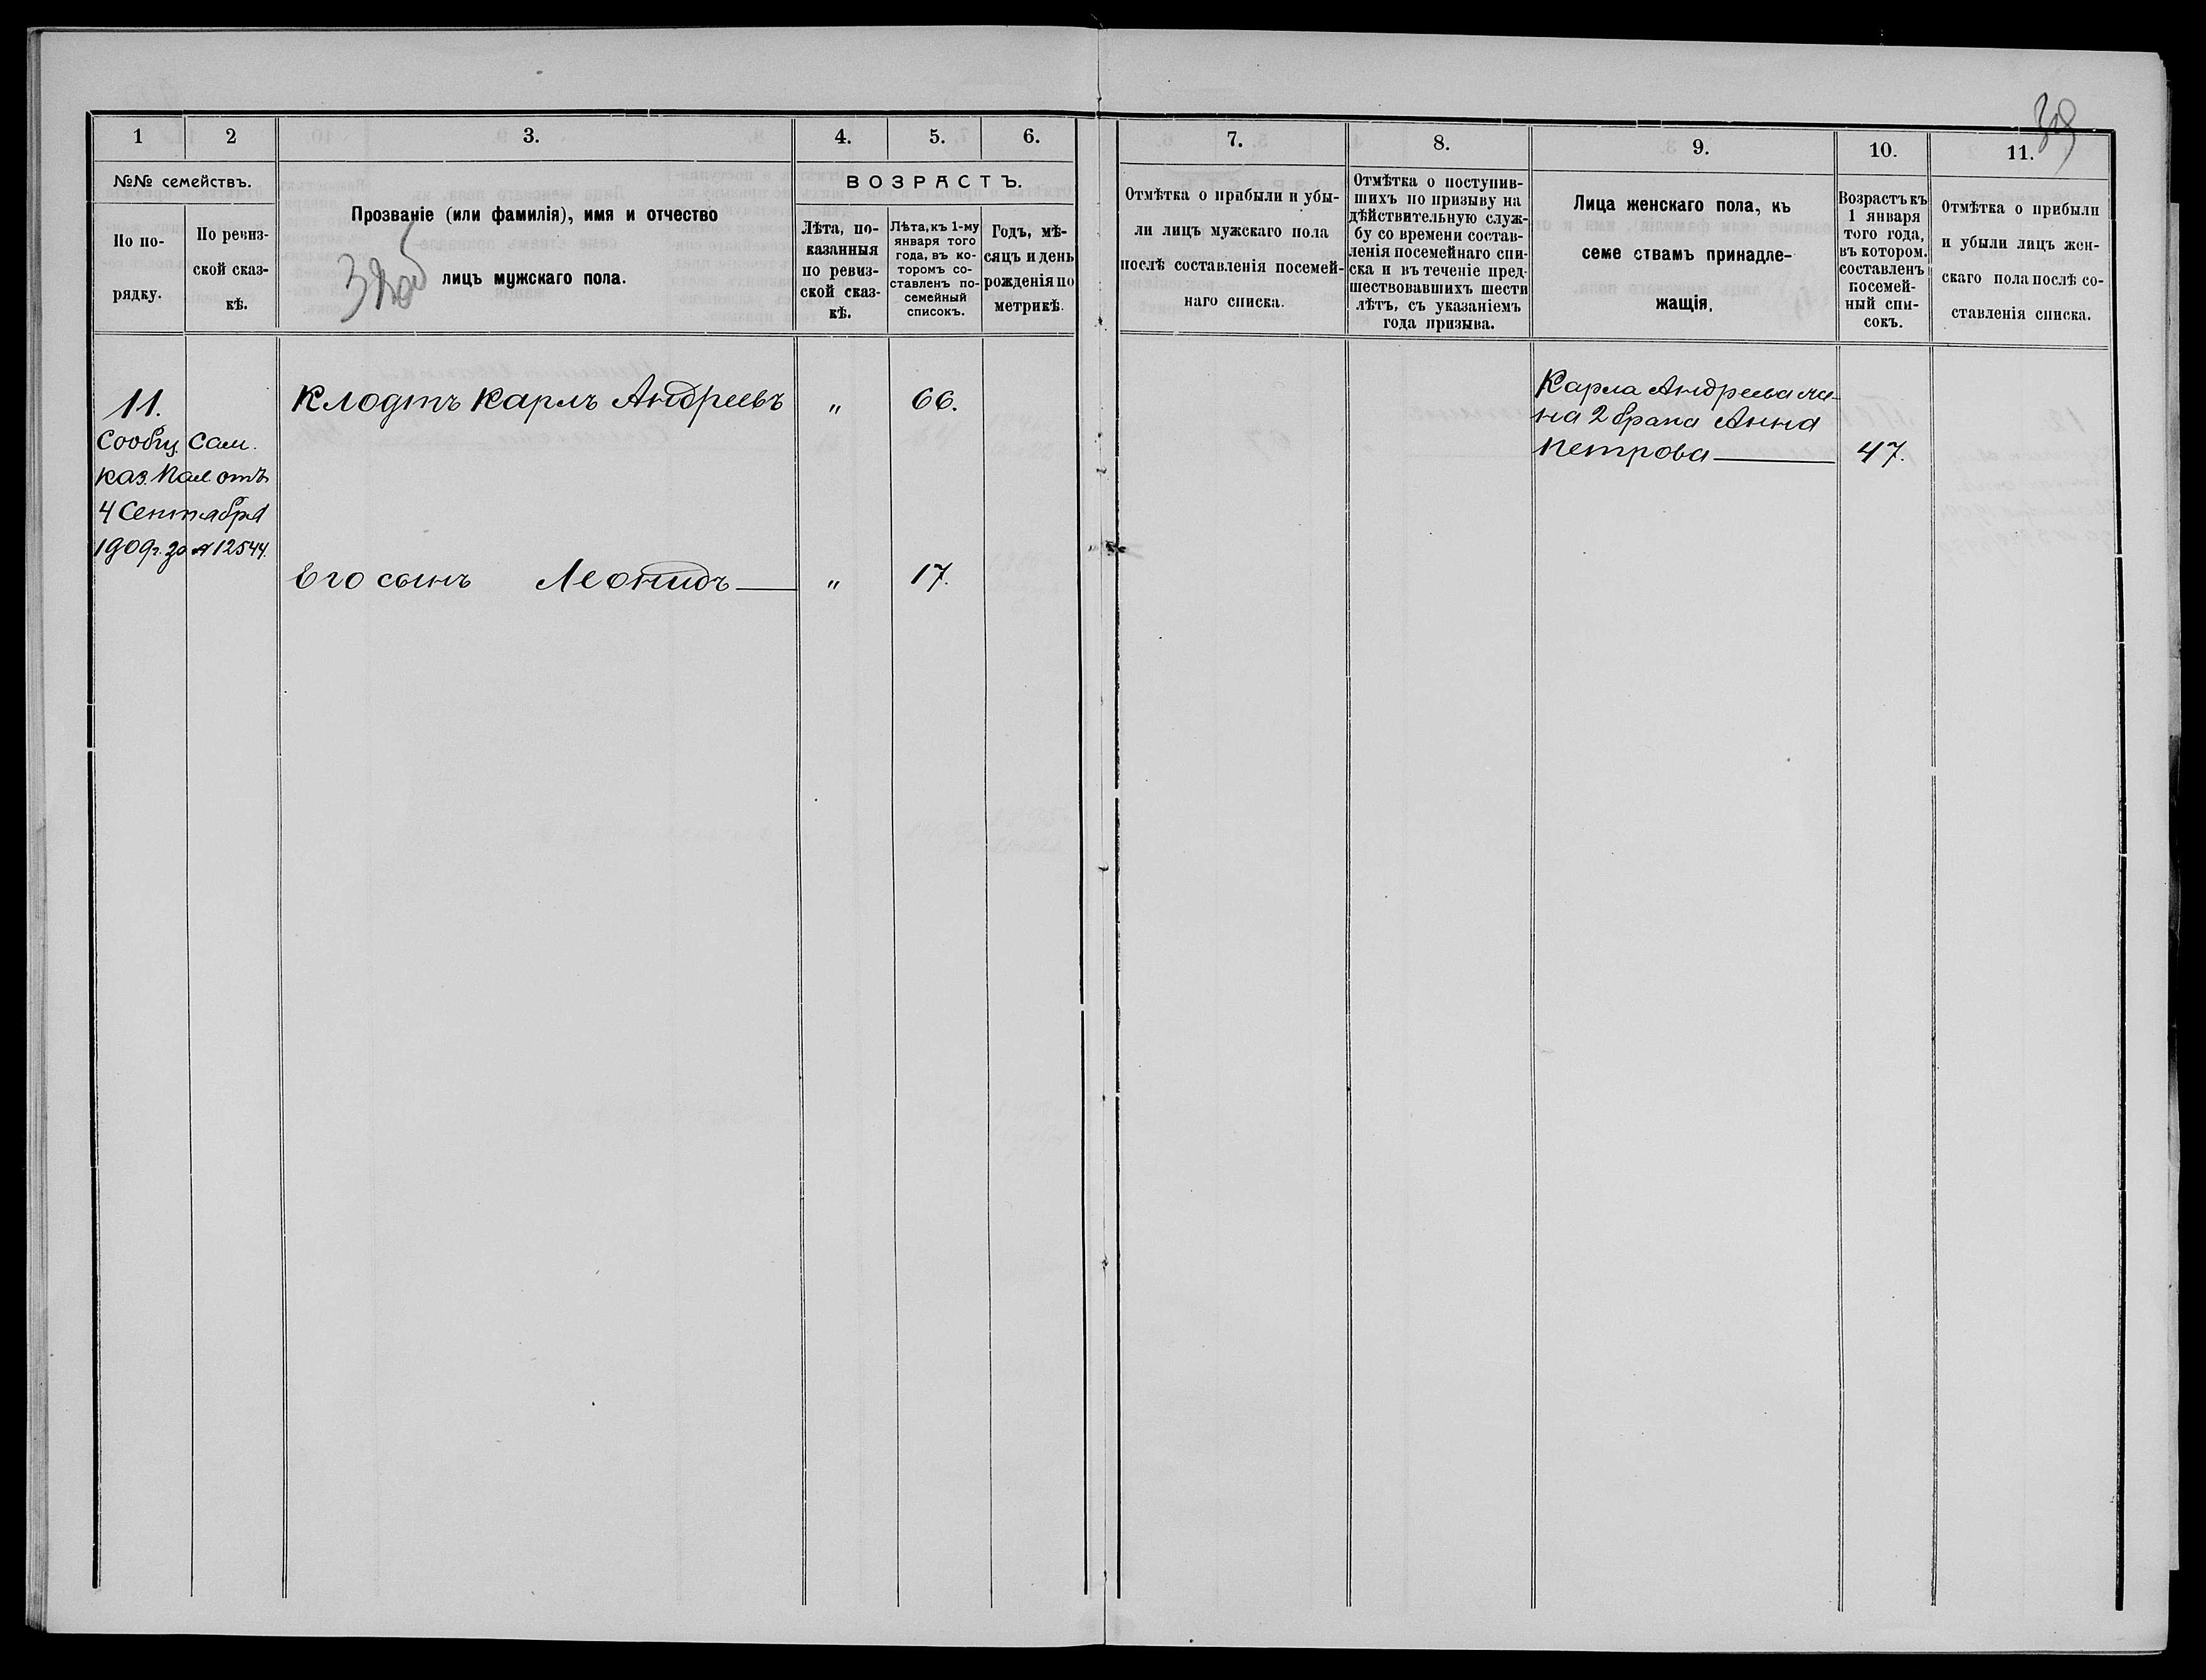 39
1
2
3.
4.
5.
6.
№№ семействъ.
По по-
рядку.
По ревиз-
ской сказ-
кѣ.
Прозваніе (или фамилія), имя и отчество
лицъ мужскаго пола.
ВОЗРАСТЪ.
Лѣта, по-
казанныя
по ревиз-
ской сказ-
кѣ.
Лѣта, къ 1-му
января того
года, въ ко-
торомъ со-
ставленъ по-
семейный
списокъ.
Годъ, мѣ-
сяцъ и день
рожденія по
метрикѣ.
11.
Сообщ. Сам.
каз. Пал отъ
4 Сентября
1909г. за № 12544.
Клодтъ Карлъ Андреевъ
„
66.
Его сынъ Леонидъ
„
17.
7.
8.
9.
10.
11.
Отмѣтка о прибыли и убы-
ли лицъ мужскаго пола
послѣ составленія посемей-
наго списка.
Отмѣтка о поступив-
шихъ по призыву на
дѣйствительную служ-
бу со времени состав-
ленія посемейнаго спи-
ска и въ теченіе пред-
шествовавшихъ шести
лѣтъ, съ указаніемъ
года призыва.
Лица женскаго пола, къ
семе ствамъ принадле-
жащія.
Возрастъ къ
1 января
того года,
въ котором.
составленъ
посемей-
ный спи-
сокъ.
Отмѣтка о прибыли
и убыли лицъ жен-
скаго пола послѣ со-
ставленія списка.
Карла Андреева же-
на 2 брака Анна
Петрова
47.